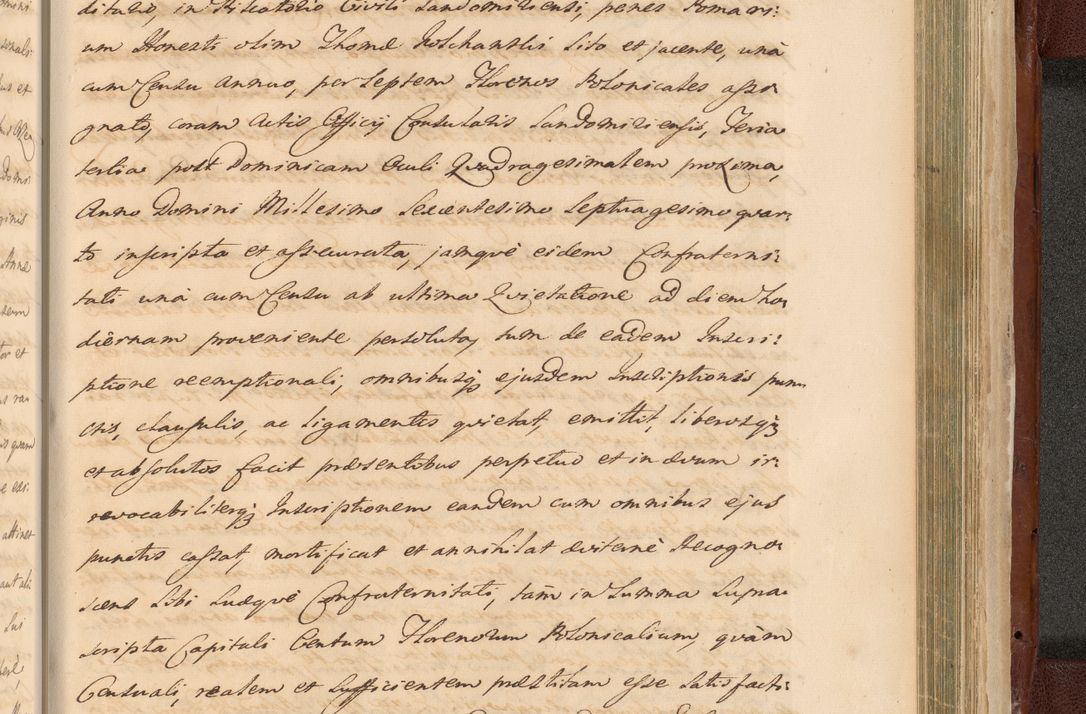 ditaro, in Piscatorio Civili Sandomiriensi, penes Pomari:
um Honesti olim Thomæ Solchanskis sito et jacente, unà
cum Censu annuo, per Septem Florenos Polonicales assi
gnato, coram Actis Officij Consularis Sandomiriensis, Feria
tertia post Dominicam Oculi Quadragesimalem proxima,
Anno Domini Millesimo Sexcentesimo Septuagesimo quar:
to inscripta et assecurata, jamquè eidem Confraterni:
tati unà cum Censu ab ultima Quietatione ad diem ho
diernam proveniente persoluta, tum de eadem Inscri:
ptione reemptionali, omnibusq3 ejusdem Inscriptionis pun
ctis, clausulis, ac ligamentis quietat, emittit, liberosq3
et absolutos facit præsentibus perpetuò et in ævum ir:
revocabiliterq3 Inscriptionem eandem cum omnibus ejus
punctis cassat, mortificat et annihilat æviternè Recogno
scens Sibi Suæquè Confraternitati, tàm in Summa Supra
scripta Capitali Centum Florenorum Polonicalium, quàm
Censuali, realem et sufficientem præstitam esse Satisfacti: